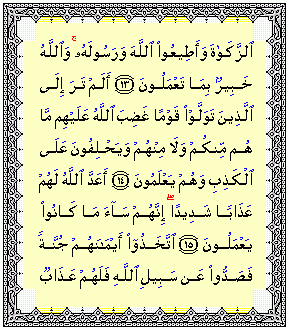 ٱلزَّكَوٰةَ وَأَطِيعُوا۟ ٱللَّهَ وَرَسُولَهُۥ ۚ وَٱللَّهُ
خَبِيرٌۢ بِمَا تَعْمَلُونَ ١٣ أَلَمْ تَرَ إِلَى
ٱلَّذِينَ تَوَلَّوْا۟ قَوْمًا غَضِبَ ٱللَّهُ عَلَيْهِم مَّا
هُم مِّنكُمْ وَلَا مِنْهُمْ وَيَحْلِفُونَ عَلَى
ٱلْكَذِبِ وَهُمْ يَعْلَمُونَ ١٤ أَعَدَّ ٱللَّهُ لَهُمْ
عَذَابًا شَدِيدًا ۖ إِنَّهُمْ سَآءَ مَا كَانُوا۟
يَعْمَلُونَ ١٥ ٱتَّخَذُوٓا۟ أَيْمَٰنَهُمْ جُنَّةً
فَصَدُّوا۟ عَن سَبِيلِ ٱللَّهِ فَلَهُمْ عَذَابٌ